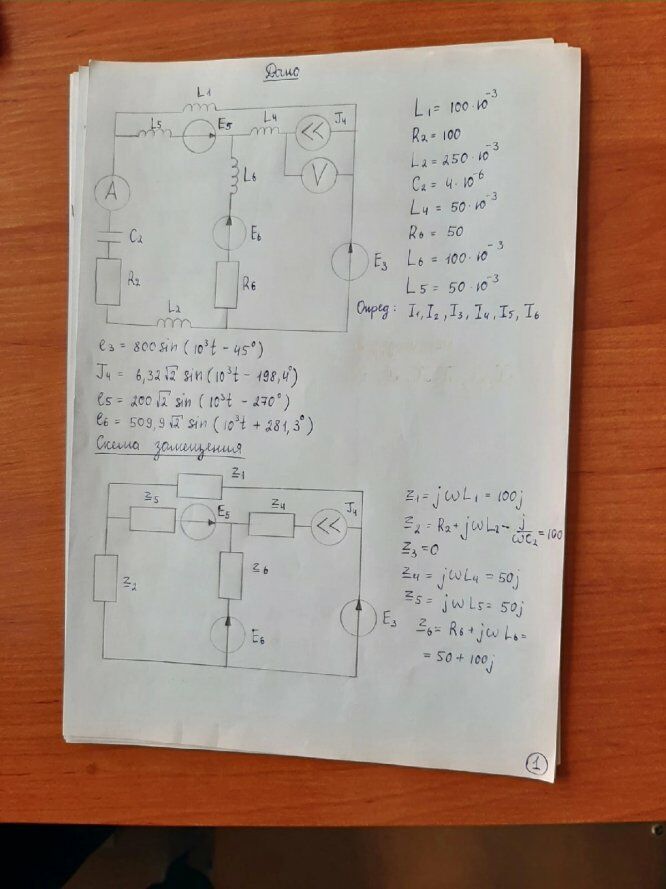 Дано
L1
L5
E5
L4
J4
A
V
L6
C2
E6
E3
R2
R6
L2
L1 = 100·10^-3
R2 = 100
L2 = 250·10^-3
C2 = 4·10^-6
L4 = 50·10^-3
R6 = 50
L6 = 100·10^-3
L5 = 50·10^-3
Опред: I1, I2, I3, I4, I5, I6
e3 = 800 sin (10³t - 45°)
J4 = 6,32√2 sin (10³t - 198,4°)
e5 = 200√2 sin (10³t - 270°)
e6 = 509,9√2 sin (10³t + 281,3°)
Схема замещения
Z1
Z5
E5
Z4
J4
Z2
Z6
E6
E3
Z1 = jωL1 = 100j
Z2 = R2 + jωL2 - j/ωC2 = 100
Z3 = 0
Z4 = jωL4 = 50j
Z5 = jωL5 = 50j
Z6 = R6 + jωL6 =
= 50 + 100j
1